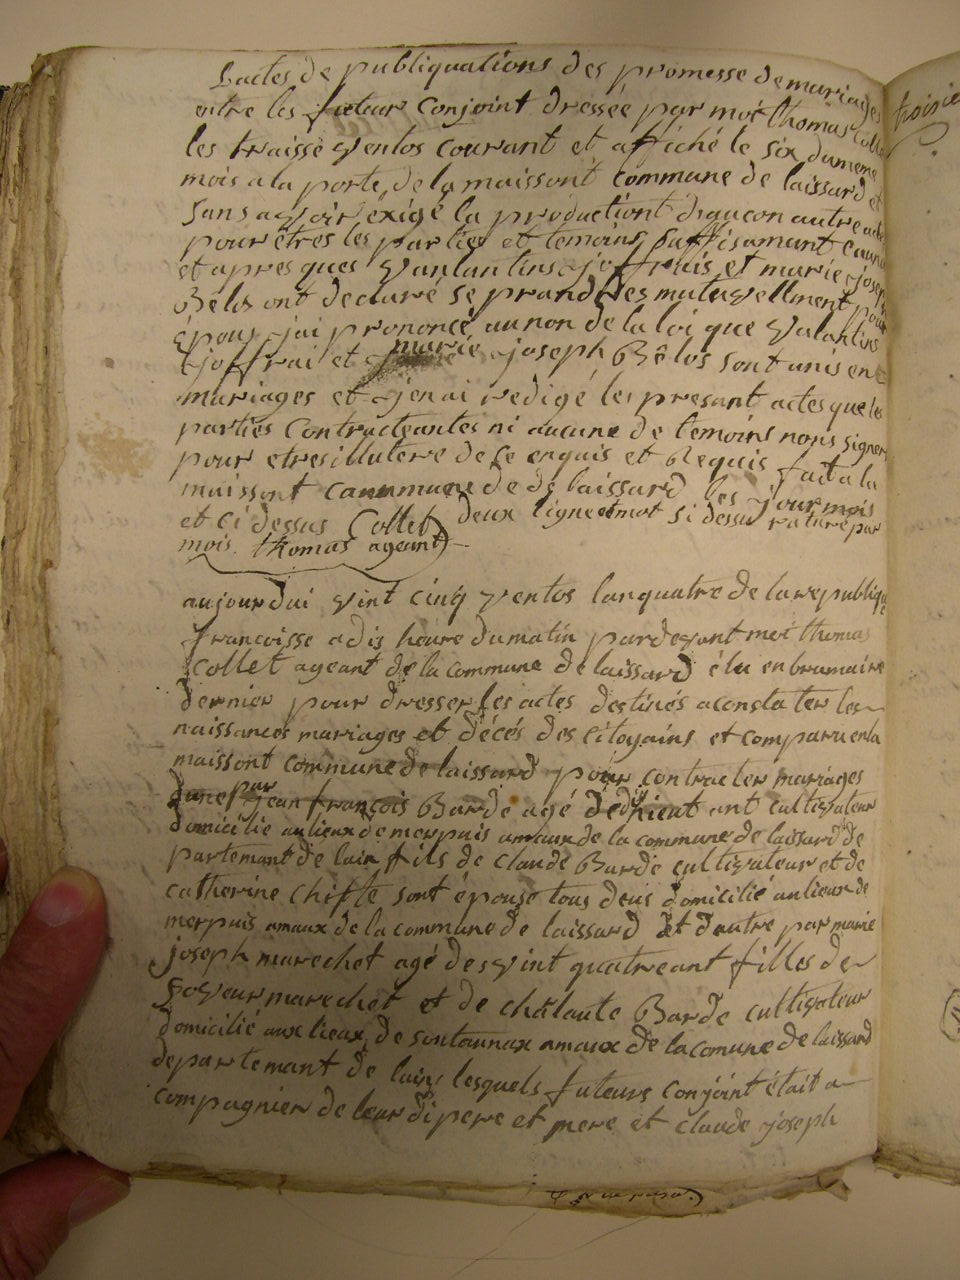 Lactes de publiquations des promesse de mariages
entre les futeur conjoint dressée par moi thomas Collet
les traisse ventos courant et affiché le six du meme
mois a la porte de la maissont commune de laissard et
sans avoir éxigé la productiont daucon autre acte
pour êtres les parties et temoins suffisamant
et apres ques Vanlantins joffrais et marie joseph
Bélos ont declaré se prandres mutuvellment pour
époux jai prononcé au non de la loi que Valantins
joffrai et marie joseph Bélos sont unis en
mariages et jen ai redigé les presant actes que les
parties Contracteantes ni aucune de temoins nons signer
pour etres illutere de ce enquis et Requis fait a la
maissont cammune de laissard les jour mois
et ci dessus Collet deux ligne et mot si dessu raturé par
mois. thomas ageant
aujourdui vint cinq ventos lanquatre de la republique
francoisse a dis heure du matin pardevant moi thomas
Collet ageant de la commune de laissard élu en brumaire
dernier pour dresser les actes destinés a constater les
naissances mariages et décés des Citoyains et comparu en la
maissont commune de laissard pour contracter mariages
dune par jean françois Barde agé cultivateur
domicilié au lieux de merpuis amaux de la commune de laissard de
partemant de lain fils de claude Barde cultivateur et de
catherine chifle sont épouse tous deus domicilié au lieux de
merpuis amaux de la commune de laissard Et dautre par marie
joseph marechet agé des vint quatre ant filles de
marechet et de Barde cultivateur
domicilié aux lieux de amaux de la comune de laissard
departemant de lain lesquels futeurs conjoint était a
compagnier de leur di pere et mere et claude joseph